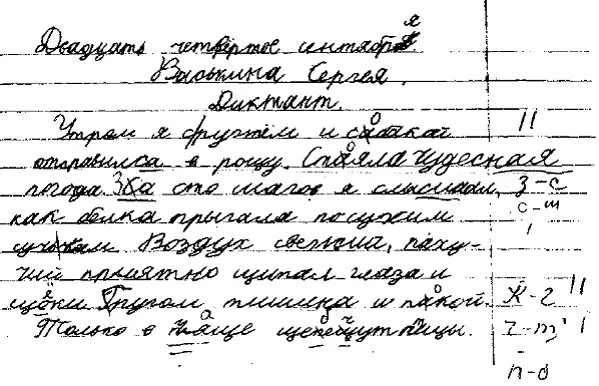 Двадцать четвёртое сентября
Васькина Сергея.
Диктант.
Утром я с друтём и сабакай
отправился в рощу. Спаяла чудесная
погода. Зка сто шагов я слысшал,
как белка прыгала по сухим
сучкам. Воздух свежий, паху-
чий приятно щипал глаза и
щёки. Гругом тишина и пакой.
Только в чаще щебечут птицы.
з-с
с-ш
к-г
г-т
п-б